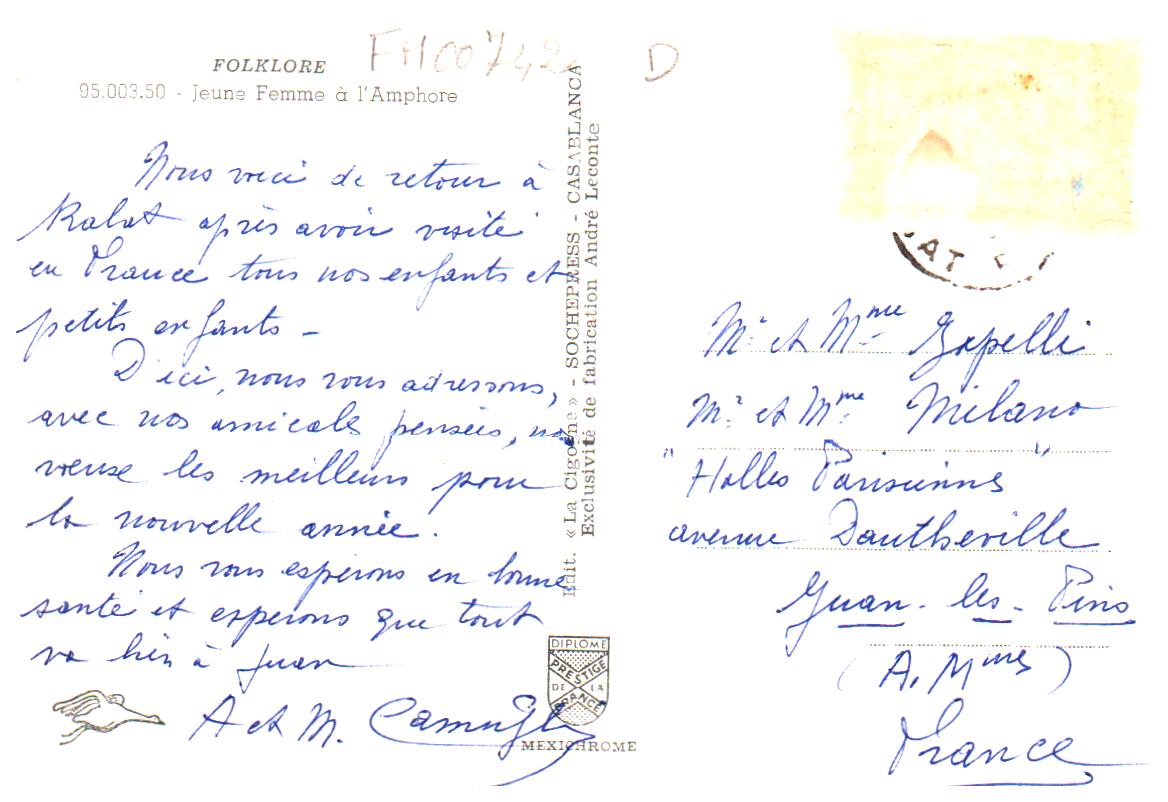 FOLKLORE
95.003.50 - Jeune Femme à l'Amphore
FM00742
D
Nous voici de retour à
Rabat après avoir visité
en France tous nos enfants et
petits enfants –
D'ici, nous vous adressons,
avec nos amicales pensées, nos
vœux les meilleurs pour
la nouvelle année.
Nous vous espérons en bonne
santé et espérons que tout
va bien à Juan
A et M. Camugli
Edit. «La Cigogne» - SOCHEPRESS - CASABLANCA
Exclusivité de fabrication André Leconte
DIPLOME
PRESTIGE
DE LA
FRANCE
MEXICHROME
BAT
Mr et Mme
Mr et Mme Milano
"Halles Parisiennes"
avenue Dautheville
Juan-les-Pins
(A. Mmes)
France